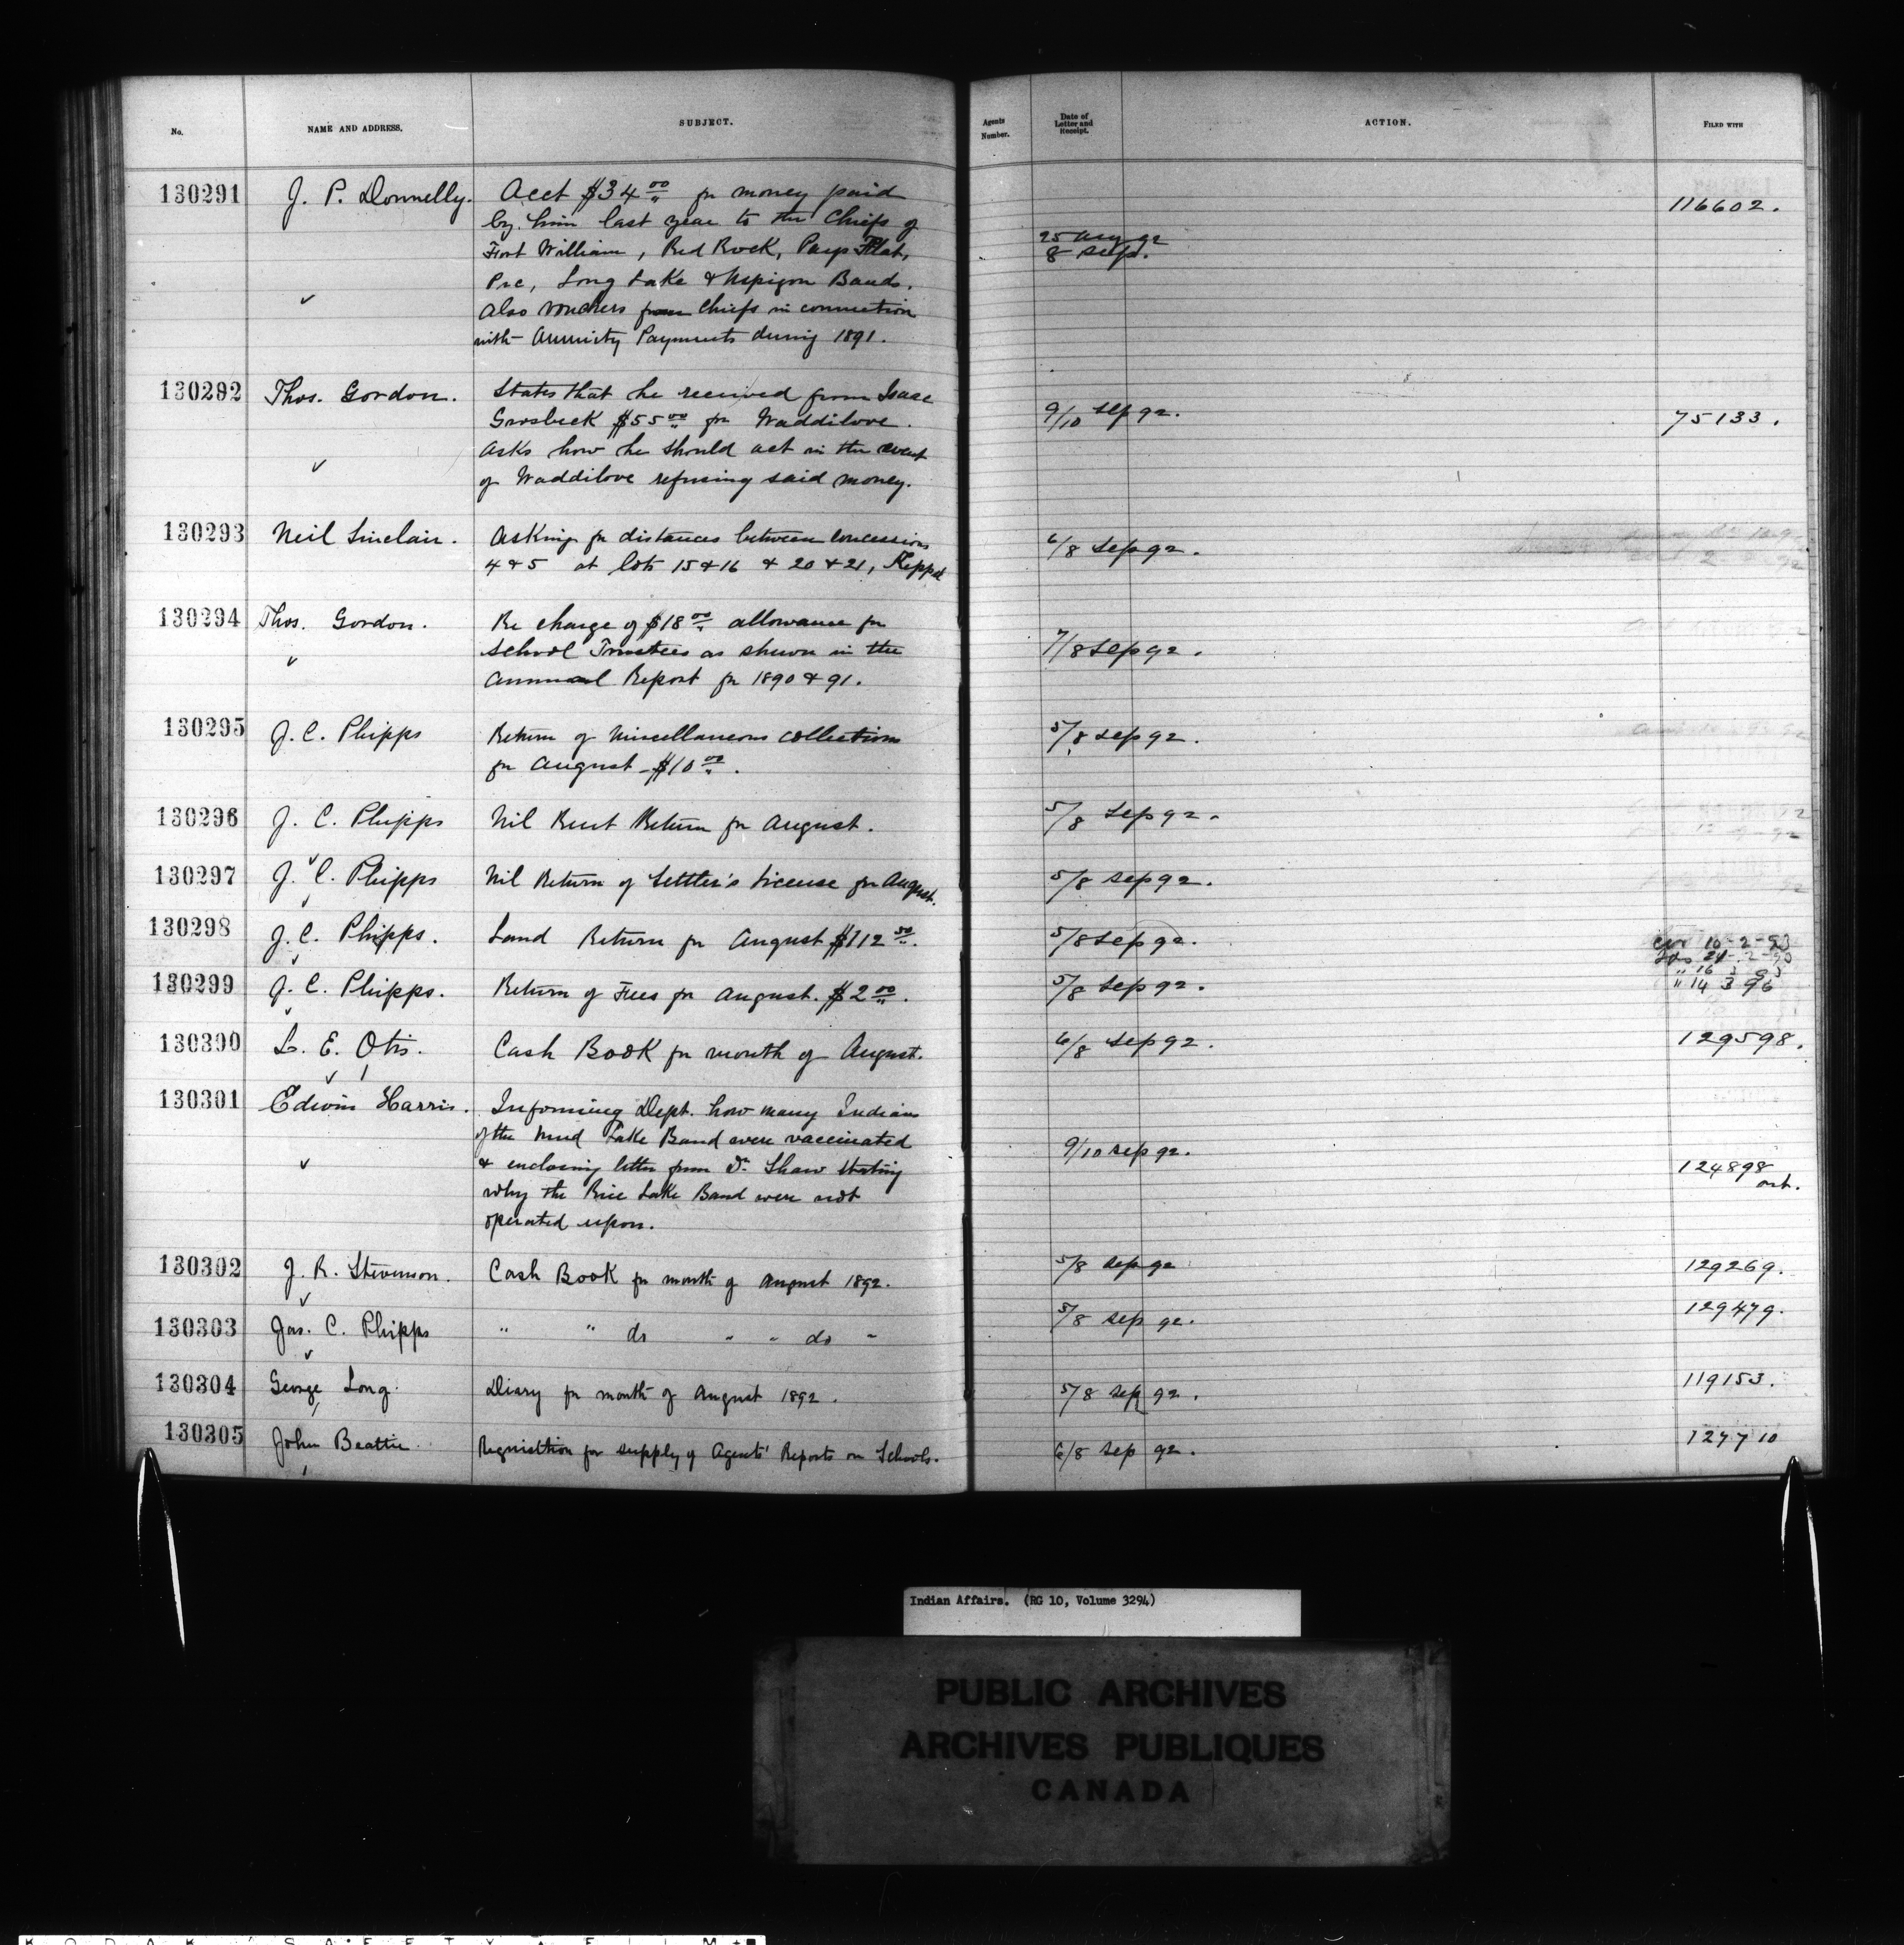 No. NAME AND ADDRESS. SUBJECT. Agents Number. Date of Letter and Receipt. ACTION. FILED WITH
130291 J. P. Donnelly. Acct $34 00 for money paid
by him last year to the Chiefs of
Fort William, Red Rock, Pays Plat,
Pic, Long Lake & Nipigon Bands.
Also vouchers from Chiefs in connection
with Annuity Payments during 1891.
25 Aug 92
8 Sept.
116602.
130292 Thos. Gordon. States that he received from Isaac
Grosbeck $55 00 for Waddilove.
Asks how he should act in the event
of Waddilove refusing said money.
9/10 Sep 92.
75133.
130293 Neil Sinclair. Asking for distances between concessions
4 & 5 at lots 15 & 16 & 20 & 21, Keppel
6/8 Sep 92.
130294 Thos. Gordon. Re charge of $18 00 allowance for
School Trustees as shewn in the
Annual Report for 1890 & 91.
7/8 Sep 92.
130295 J. C. Phipps Return of Miscellaneous collections
for August - $10 00.
5/8 Sep 92.
130296 J. C. Phipps Nil Rent Return for August. 5/8 Sep 92.
130297 J. C. Phipps Nil Return of Settler's License for August. 5/8 Sep 92.
130298 J. C. Phipps. Land Return for August $112 50. 5/8 Sep 92.
16-2-93
130299 J. C. Phipps. Return of Fees for August. $2 00. 5/8 Sep 92.
" 14 3 96
130300 L. E. Otis. Cash Book for month of August. 6/8 Sep 92. 129598.
130301 Edwin Harris. Informing Dept. how many Indians
of the Mud Lake Band were vaccinated
& enclosing letter from Dr. Shaw stating
why the Rice Lake Band were not
operated upon.
9/10 Sep 92.
124898
130302 J. R. Stevenson. Cash Book for month of August 1892. 5/8 Sep 92 129269.
130303 Jas. C. Phipps " " do " " do " 5/8 Sep 92. 129479.
130304 George Long. Diary for month of August 1892. 5/8 Sep 92. 119153.
130305 John Beattie. Requisition for supply of Agents' Reports on Schools. 6/8 Sep 92. 127710
Indian Affairs. (RG 10, Volume 3294)
PUBLIC ARCHIVES
ARCHIVES PUBLIQUES
CANADA
KODAK SAFETY FILM